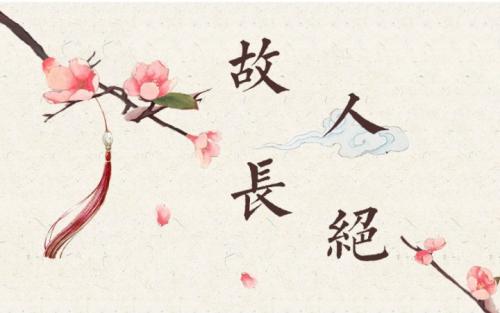 故人長絕